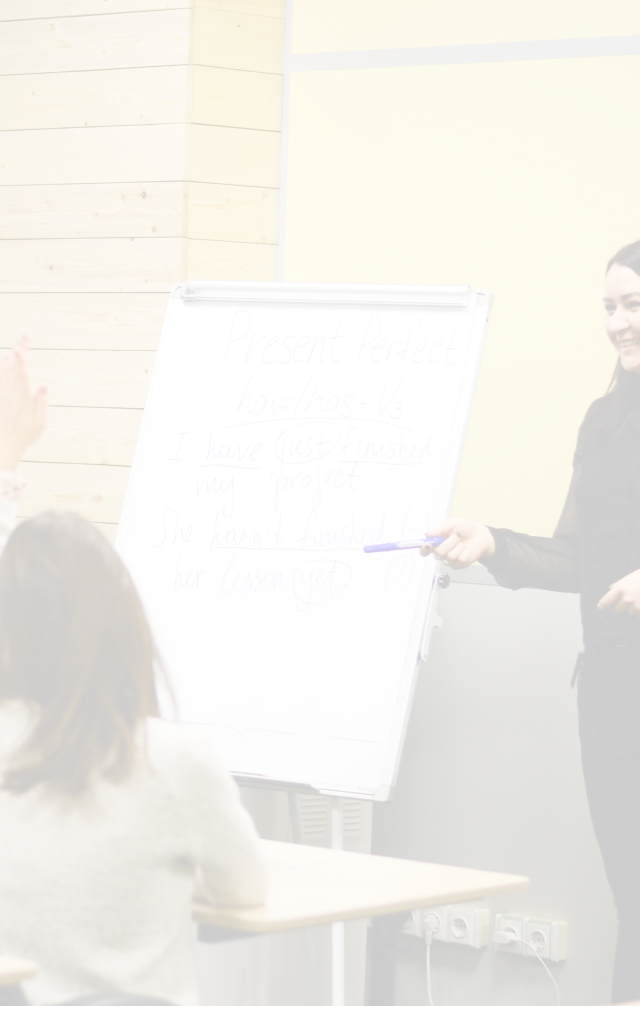 Present Perfect
have/has - V3
I have just finished
my project
She hasn't finished (-)
her lesson yet. (?)